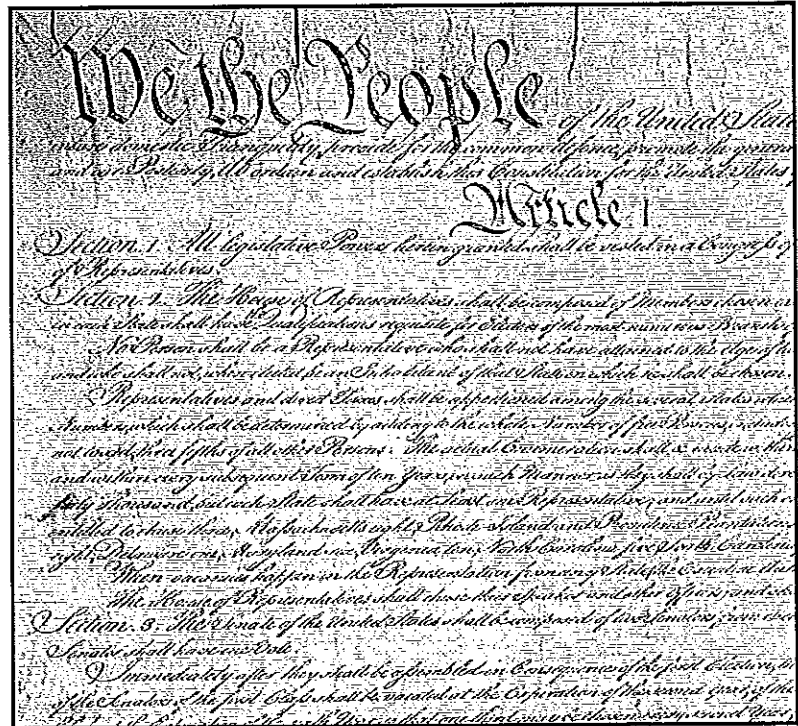 We the People of the United State
insure domestic Tranquility, provide for the common defence, promote the genera
and our Posterity, do ordain and establish this Constitution for the United States
Article 1
Section. 1. All legislative Powers herein granted shall be vested in a Congress of
of Representatives.
Section. 2. The House of Representatives shall be composed of Members chosen
in each State shall have Qualifications requisite for Electors of the most numerous Branch
No Person shall be a Representative who shall not have attained to the Age of
and who shall not, when elected, be an Inhabitant of that State in which he shall be chosen.
Representatives and direct Taxes shall be apportioned among the several States
Numbers, which shall be determined by adding to the whole Number of free Persons,
not taxed, three fifths of all other Persons. The actual Enumeration shall be made
and within every subsequent Term of ten Years, in such Manner as they shall by Law
thirty Thousand, but each State shall have at Least one Representative; and until such
entitled to chuse three, Massachusetts eight, Rhode Island and Providence Plantations
eight, Delaware one, Maryland six, Virginia ten, North Carolina five, South Carolina
When vacancies happen in the Representation from any State, the Executive
The House of Representatives shall chuse their Speaker and other Officers; and
Section. 3. The Senate of the United States shall be composed of two Senators from
Senator shall have one Vote.
Immediately after they shall be assembled in Consequence of the first Election,
of the Senators of the first Class shall be vacated at the Expiration of the second Year, of the